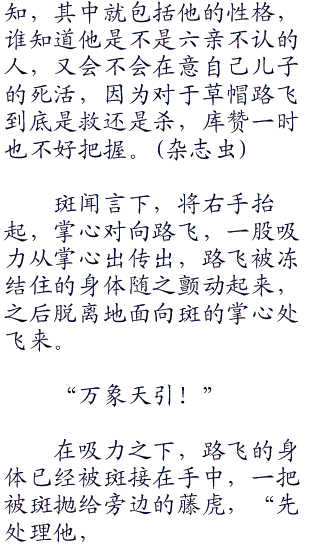 知，其中就包括他的性格，
谁知道他是不是六亲不认的
人，又会不会在意自己儿子
的死活，因为对于草帽路飞
到底是救还是杀，库赞一时
也不好把握。(杂志虫)
斑闻言下，将右手抬
起，掌心对向路飞，一股吸
力从掌心出传出，路飞被冻
结住的身体随之颤动起来，
之后脱离地面向斑的掌心处
飞来。
“万象天引！”
在吸力之下，路飞的身
体已经被斑接在手中，一把
被斑抛给旁边的藤虎，“先
处理他，